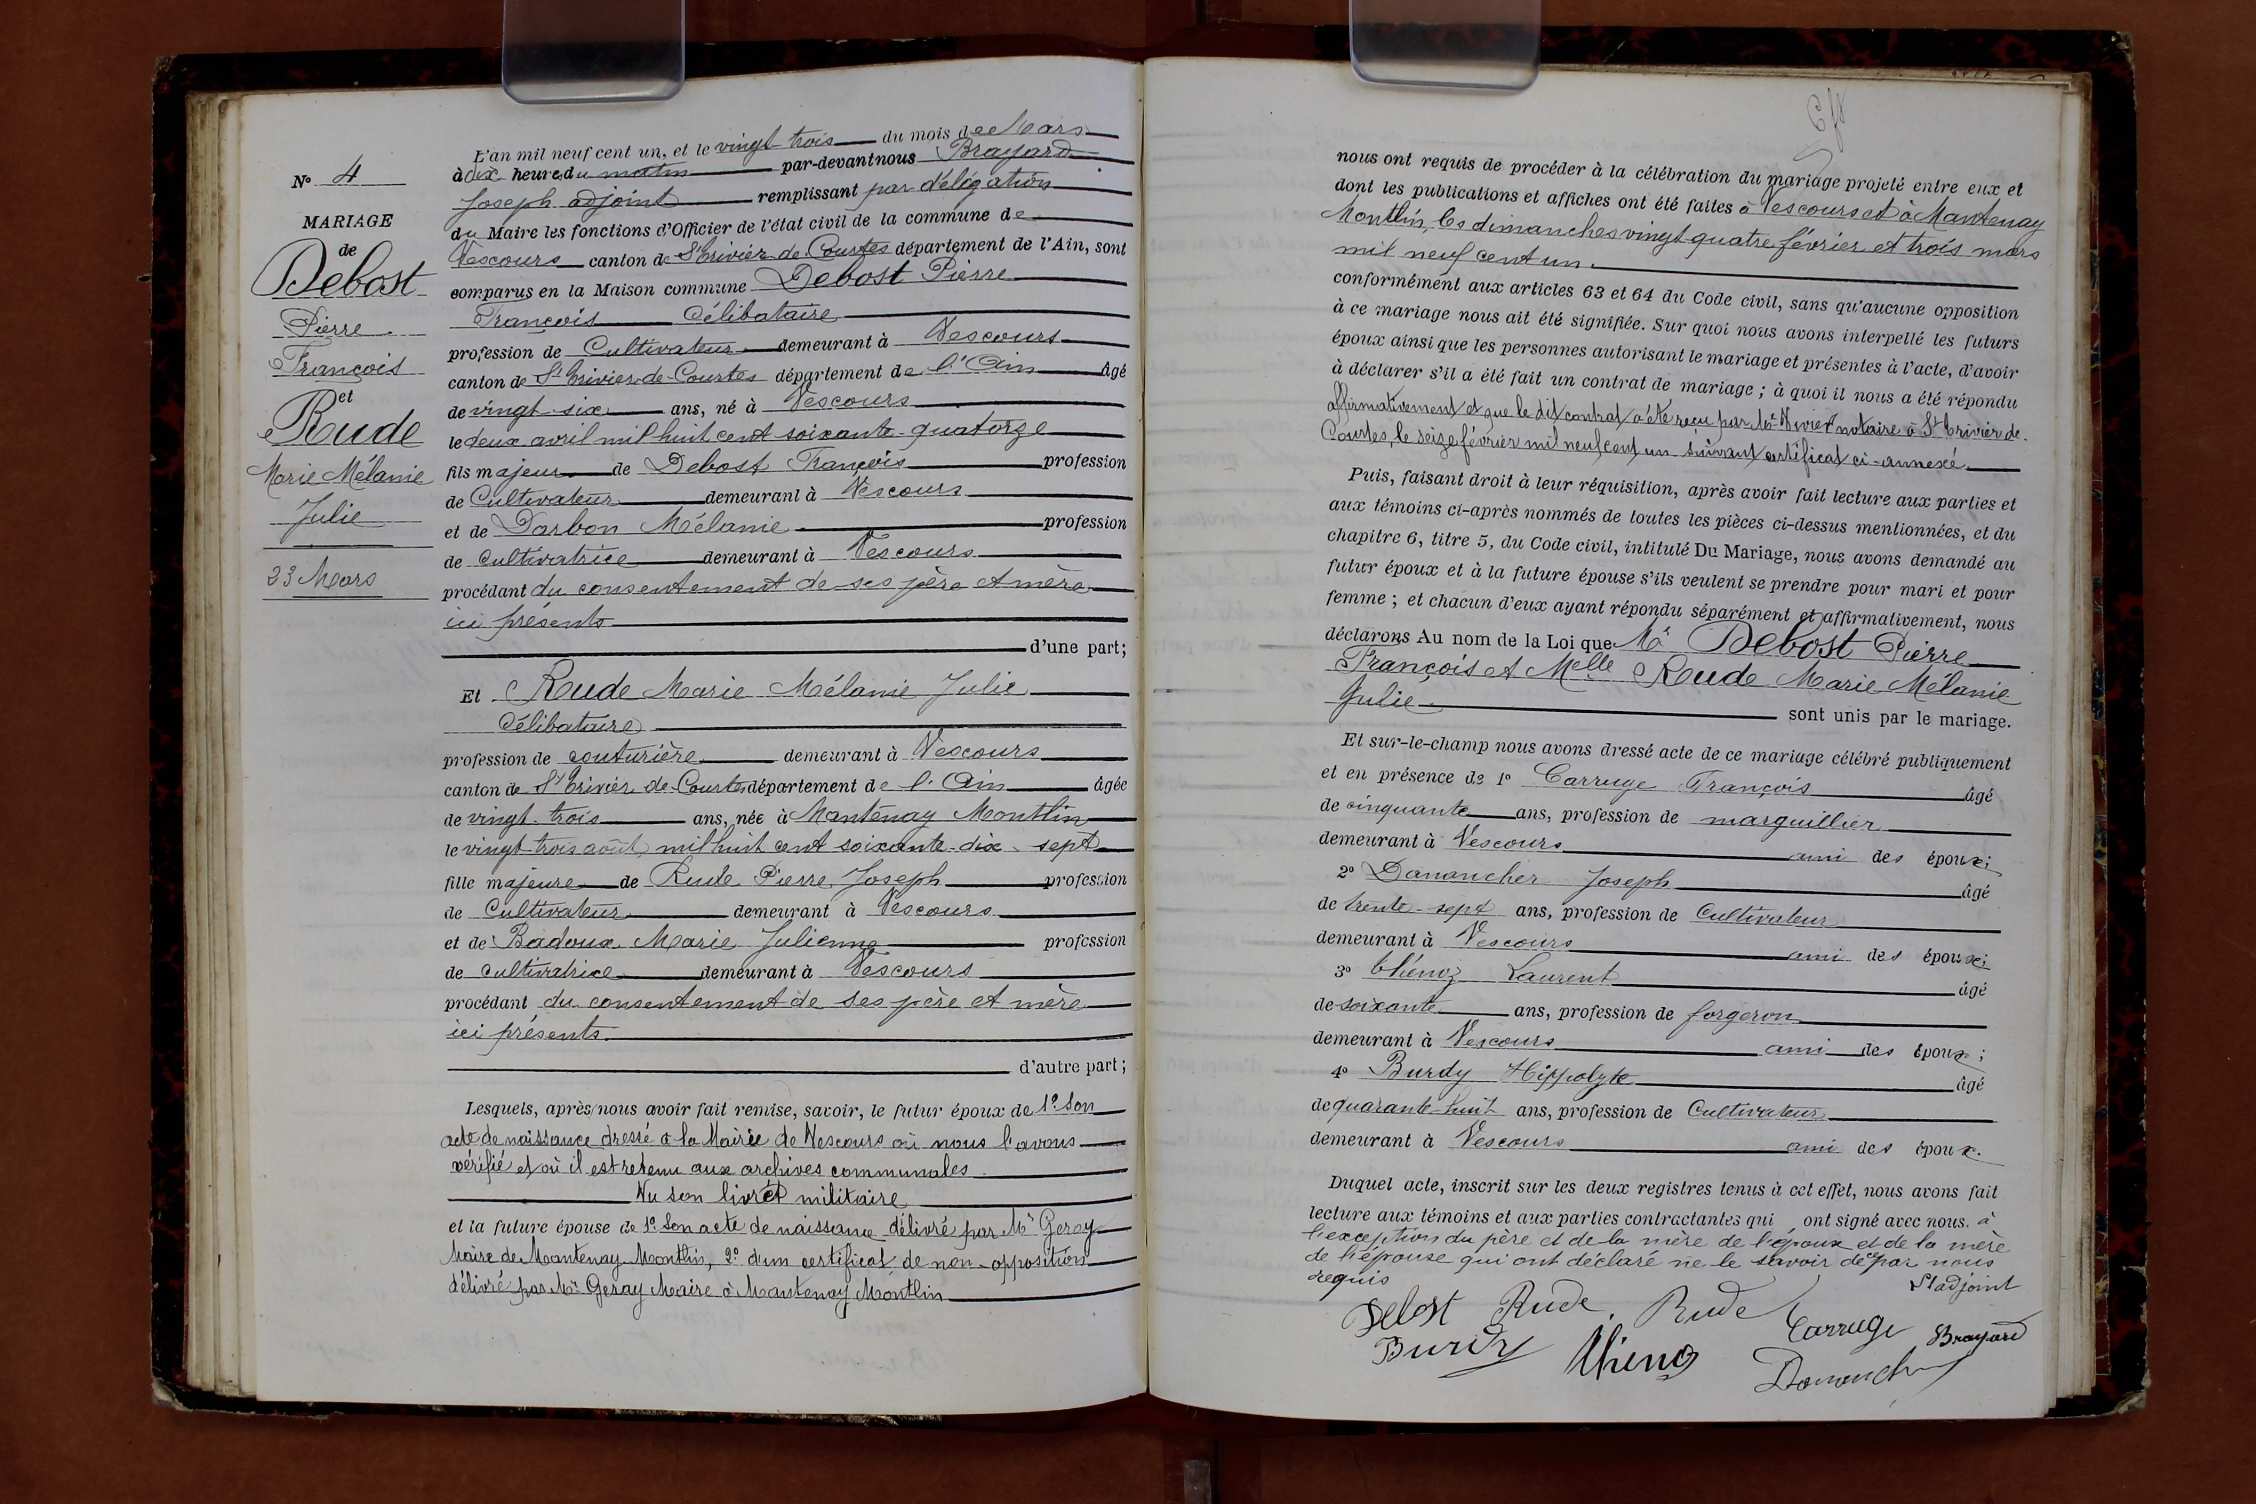 N° 4
MARIAGE
de
Debost
Pierre
François
et
Rude
Marie Mélanie
Julie
23 Mars
L'an mil neuf cent un, et le vingt trois du mois de Mars
à dix heures du matin par-devant nous Brayard
Joseph adjoint remplissant par délégation
du Maire les fonctions d'Officier de l'état civil de la commune de
Vescours canton de St Trivier de Courtes département de l'Ain, sont
comparus en la Maison commune Debost Pierre
François Célibataire
profession de Cultivateur demeurant à Vescours
canton de St Trivier-de-Courtes département de l'Ain âgé
de vingt-six ans, né à Vescours
le deux avril mil huit cent soixante-quatorze
fils majeur de Debost François profession
de Cultivateur demeurant à Vescours
et de Darbon Mélanie profession
de cultivatrice demeurant à Vescours
procédant du consentement de ses père et mère
ici présents
d'une part;
Et Rude Marie Mélanie Julie
Célibataire
profession de couturière demeurant à Vescours
canton de St Trivier-de-Courtes département de l'Ain âgée
de vingt-trois ans, née à Mantenay Montlin
le vingt-trois août mil huit cent soixante-dix-sept
fille majeure de Rude Pierre Joseph profession
de Cultivateur demeurant à Vescours
et de Badoux Marie Julienne profession
de cultivatrice demeurant à Vescours
procédant du consentement de ses père et mère
ici présents.
d'autre part;
Lesquels, après nous avoir fait remise, savoir, le futur époux de 1° Son
acte de naissance dressé à la Mairie de Vescours où nous l'avons
vérifié et où il est retenu aux archives communales
Vu son livret militaire
et la future épouse de 1° Son acte de naissance délivré par Mr Geray
Maire de Mantenay Montlin, 2° d'un certificat de non-opposition
délivré par Mr Geray Maire à Mantenay Montlin
nous ont requis de procéder à la célébration du mariage projeté entre eux et
dont les publications et affiches ont été faites à Vescours et à Mantenay
Montlin, les dimanches vingt quatre février et trois mars
mil neuf cent un.
conformément aux articles 63 et 64 du Code civil, sans qu'aucune opposition
à ce mariage nous ait été signifiée. Sur quoi nous avons interpellé les futurs
époux ainsi que les personnes autorisant le mariage et présentes à l'acte, d'avoir
à déclarer s'il a été fait un contrat de mariage ; à quoi il nous a été répondu
affirmativement et que le dit contrat a été reçu par Me Rivier notaire à St Trivier de
Courtes, le seize février mil neuf cent un suivant certificat ci-annexé.
Puis, faisant droit à leur réquisition, après avoir fait lecture aux parties et
aux témoins ci-après nommés de toutes les pièces ci-dessus mentionnées, et du
chapitre 6, titre 5, du Code civil, intitulé Du Mariage, nous avons demandé au
futur époux et à la future épouse s'ils veulent se prendre pour mari et pour
femme ; et chacun d'eux ayant répondu séparément et affirmativement, nous
déclarons Au nom de la Loi que Mr Debost Pierre
François et Melle Rude Marie Mélanie
Julie sont unis par le mariage.
Et sur-le-champ nous avons dressé acte de ce mariage célébré publiquement
et en présence de 1° Carruge François âgé
de cinquante ans, profession de marguillier
demeurant à Vescours ami des époux;
2° Danancher Joseph âgé
de trente-sept ans, profession de Cultivateur
demeurant à Vescours ami des époux;
3° Thénoz Laurent âgé
de soixante ans, profession de forgeron
demeurant à Vescours ami des époux;
4° Burdy Hippolyte âgé
de quarante-huit ans, profession de Cultivateur
demeurant à Vescours ami des époux.
Duquel acte, inscrit sur les deux registres tenus à cet effet, nous avons fait
lecture aux témoins et aux parties contractantes qui ont signé avec nous. à
l'exception du père et de la mère de l'époux et de la mère
de l'épouse qui ont déclaré ne le savoir de ce par nous
requis
L'adjoint
Debost Rude. Rude Carruge Brayard
Burdy Thénoz Danancher